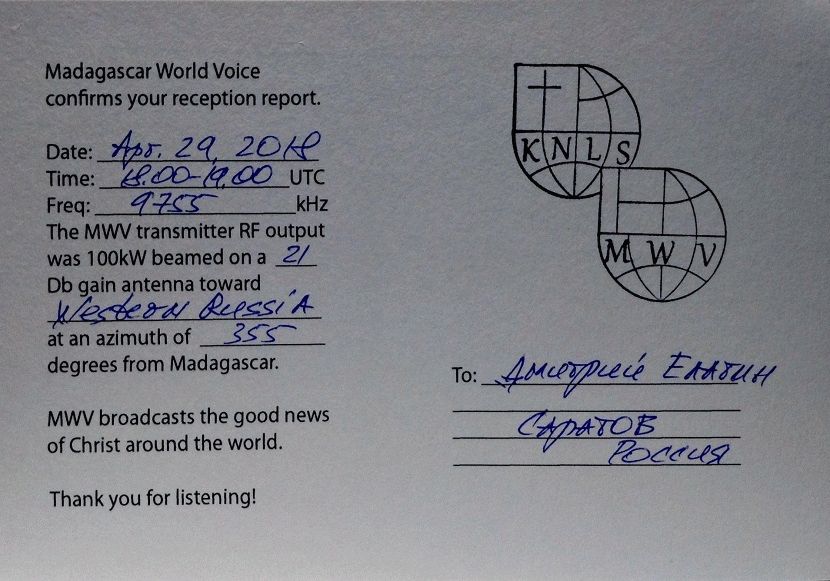 Madagascar World Voice
confirms your reception report.
Date: Apr. 29, 2018
Time: 18.00-19.00 UTC
Freq: 9755 kHz
The MWV transmitter RF output
was 100kW beamed on a 21
Db gain antenna toward
Western Russia
at an azimuth of 355
degrees from Madagascar.
MWV broadcasts the good news
of Christ around the world.
Thank you for listening!
KNLS
MWV
To: Дмитрий Елагин
Саратов
Россия